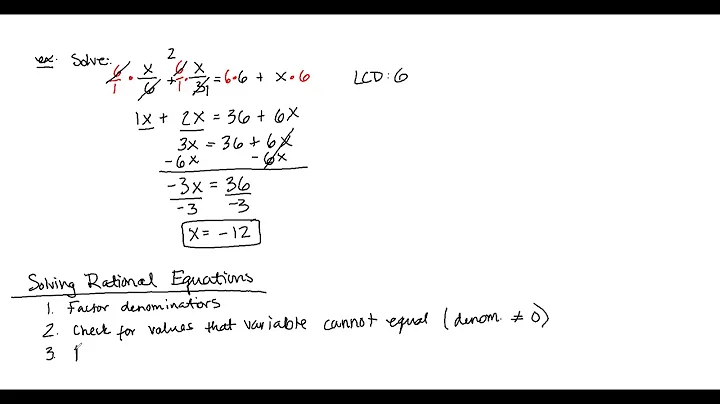 ex. Solve: LCD: 6
6/1 · x/6 + 6/1 · x/3 = 6·6 + x·6
2 1
1x + 2x = 36 + 6x
3x = 36 + 6x
-6x -6x
-3x = 36
-3 -3
x = -12
Solving Rational Equations
1. Factor denominators
2. Check for values that variable cannot equal (denom. ≠ 0)
3.